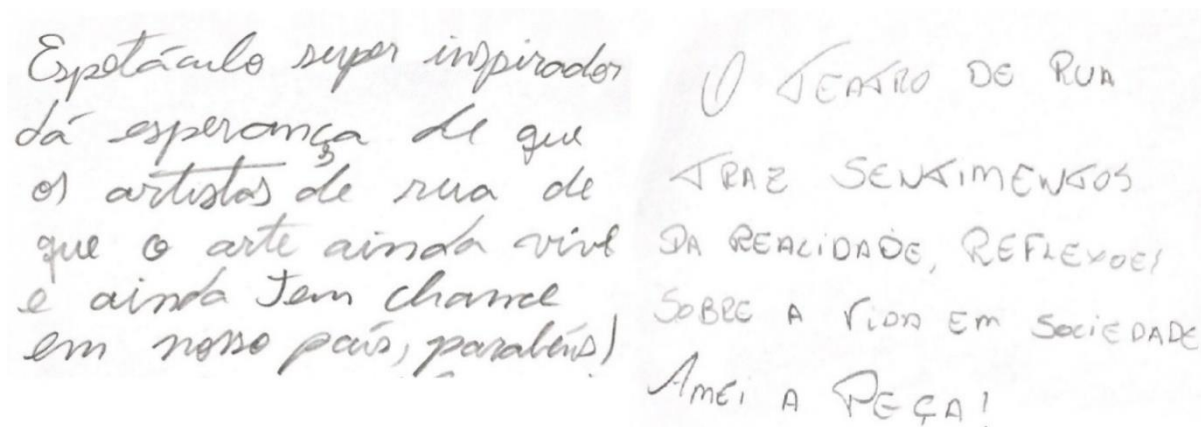 Espetáculo super inspirador
dá esperança de que
os artistas de rua de
que a arte ainda vive
e ainda tem chance
em nosso país, parabéns!
O TEATRO DE RUA
TRAZ SENTIMENTOS
DA REALIDADE, REFLEXOES
SOBRE A VIDA EM SOCIEDADE
AMEI A PEÇA!